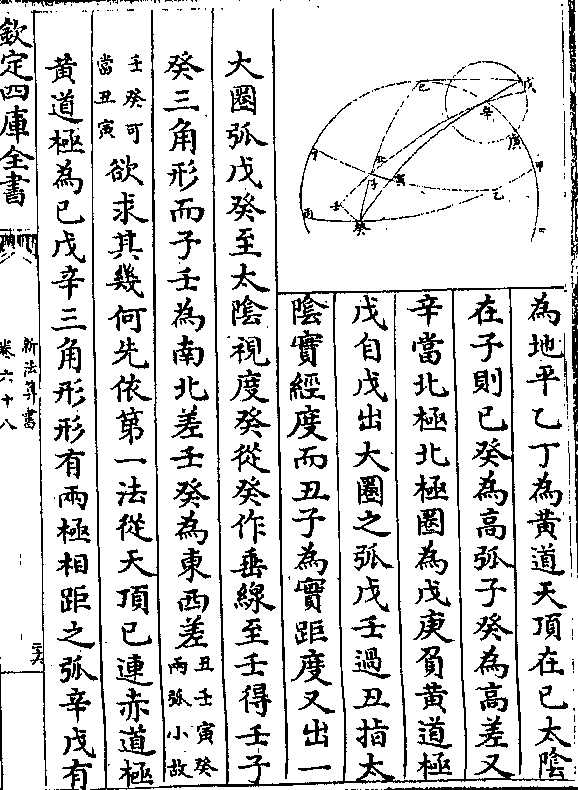 為地平乙丁為黄道天頂在已太陰
在子則已癸為高弧子癸為高差又
辛當北極北極圈為戊庚負黄道極
戊自戊出大圈之弧戊壬過丑指太
陰實經度而丑子為實距度又出一
大圈弧戊癸至太陰視度癸從癸作垂線至壬得壬子
癸三角形而子壬為南北差壬癸為東西差丑壬寅癸
兩弧小故
壬癸可
當丑寅欲求其幾何先依第一法從天頂已連赤道極
黄道極為已戊辛三角形形有兩極相距之弧辛戊有
欽定四庫全書
新法算書
卷六十八
戊
已
辛
庚
甲
乙
丑
子
寅
壬
癸
丙
丁